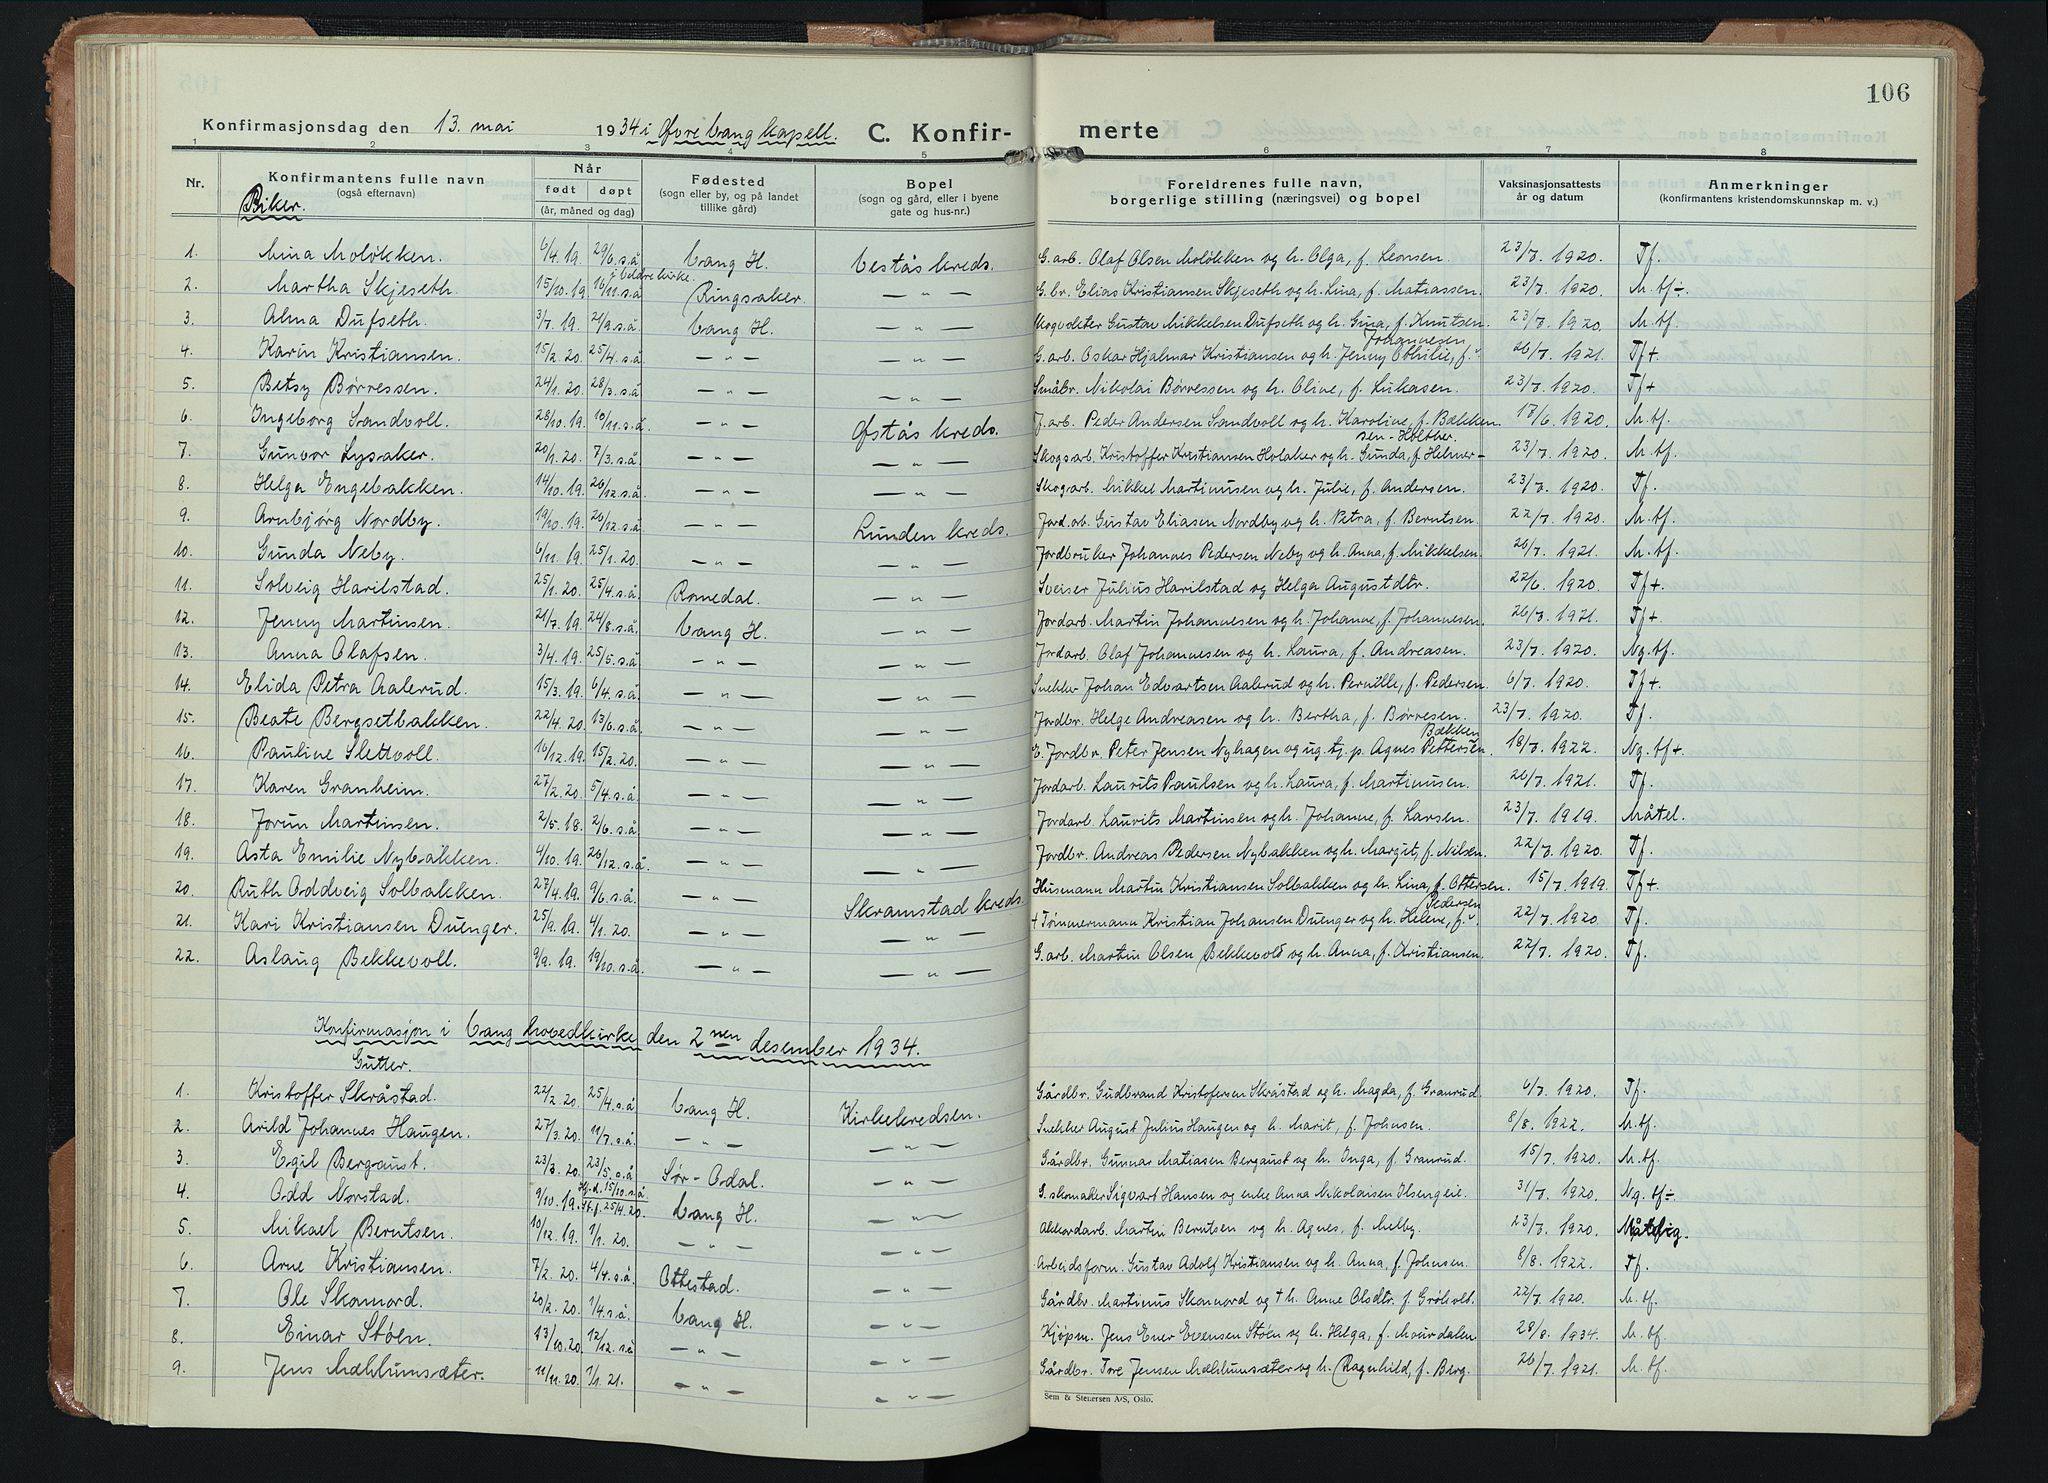 106
Konfirmasjonsdag den 13. mai 1934 i Øvre Vang kapell. C. Konfirmerte
1 2 3 4 5 6 7 8
Nr. Konfirmantens fulle navn (også efternavn) Når født døpt (år, måned og dag) Fødested (sogn eller by, og på landet tillike gård) Bopel (sogn og gård, eller i byene gate og hus-nr.) Foreldrenes fulle navn, borgerlige stilling (næringsvei) og bopel Vaksinasjonsattests år og datum Anmerkninger (konfirmantens kristendomskunnskap m. v.)
Piker.
1. Mina Moløkken. 6/4. 19. 29/6. s.å. Vang H. Vestås kreds. G. arb. Olaf Olsen Moløkken og h. Olga, f. Jensen. 23/7. 1920. Tf.
i Veldre kirke.
2. Martha Skjeseth. 15/10. 19. 16/11. s.å. Ringsaker. — " — G. br. Elias Kristiansen Skjeseth og h. Lina, f. Matiassen. 23/7. 1920. M. tf÷.
3. Alma Dufseth. 3/7. 19. 21/9. s.å. Vang H. — " — Skogvokter Gustav Mikkelsen Dufseth og h. Gina, f. Knutsen. 23/7. 1920. M. tf.
Johannesen
4. Karin Kristiansen. 15/2. 20. 25/4. s.å. — " — — " — G. arb. Oskar Hjalmar Kristiansen og h. Jenny Othilie, f. 26/7. 1921. Tf+
5. Betsy Børressen. 24/1. 20. 28/3. s.å. — " — — " — Småbr. Nikolai Børressen og h. Oline, f. Lukasen. 23/7. 1920. Tf+
6. Ingeborg Sandvoll. 28/10. 19. 16/11. s.å. — " — Østås kreds. J. arb. Peder Andersen Sandvoll og h. Karoline, f. Bækken. 18/6. 1920. M. tf.
sen-Holther.
7. Gunvor Lysaker. 20/1. 20. 7/3. s.å. — " — — " — Skogsarb. Kristoffer Kristiansen Holaker og h. Gunda, f. Helmer- 23/7. 1920. M. tf.
8. Helga Engebakken. 14/10. 19. 26/12. s.å. — " — — " — Skogarb. Mikkel Martinusen og h. Julie, f. Andersen. 23/7. 1920. Tf.
9. Arnbjørg Nordby. 19/10. 19. 26/12. s.å. — " — Lunden kreds. Jord.arb. Gustav Eliasen Nordby og h. Petra, f. Berntsen. 22/7. 1920. M. tf.
10. Gunda Neby. 6/11. 19. 25/1. 20. — " — — " — Jordbruker Johannes Pedersen Neby og h. Anna, f. Mikkelsen. 26/7. 1921. M. tf.
11. Solveig Harilstad. 25/1. 20. 25/4. s.å. Romedal. — " — Sveiser Julius Harilstad og Helga Augustdtr. 22/6. 1920. Tf+.
12. Jenny Martinsen. 21/7. 19. 24/8. s.å. Vang H. — " — Jordarb. Martin Johannesen og h. Johanne, f. Johannesen. 26/7. 1921. Tf+.
13. Anna Olafsen. 3/4. 19. 25/5. s.å. — " — — " — Jordarb. Olaf Johannesen og h. Laura, f. Andreasen. 23/7. 1920. Ng. tf.
14. Elida Petra Aalerud. 15/3. 19. 6/4. s.å. — " — — " — Snekker Johan Edvartsen Aalerud og h. Pernille, f. Pedersen. 6/7. 1920. Tf+.
15. Beate Bergsetbakken. 22/4. 20. 13/6. s.å. — " — — " — Jordbr. Helge Andreasen og h. Bertha, f. Børresen. 23/7. 1920. Tf.
Bækken
16. Pauline Slettvoll. 16/12. 19. 15/2. 20. — " — — " — E. Jordbr. Peter Jensen Nyhagen og ug. tj. p. Agnes Pettersen. 18/7. 1922. Ng. tf+.
17. Karen Granheim. 27/2. 20. 5/4. s.å. — " — — " — Jordarb. Laurits Paulsen og h. Laura, f. Martinusen. 26/7. 1921. Tf.
18. Jorun Martinsen. 2/5. 18. 2/6. s.å. — " — — " — Jordarb. Laurits Martinsen og h. Johanne, f. Larsen. 23/7. 1919. Måtel.
19. Asta Emilie Nybakken. 4/10. 19. 26/12. s.å. — " — — " — Jordbr. Andreas Pedersen Nybakken og h. Margit, f. Nilsen. 22/7. 1920. Tf.
20. Ruth Oddveig Solbakken. 27/4. 19. 9/6. s.å. — " — Skramstad kreds. Husmann Martin Kristiansen Solbakken og h. Lina, f. Ottersen. 15/7. 1919. Tf+.
Pedersen
21. Kari Kristiansen Duenger. 25/9. 19. 4/1. 20. — " — — " — + Tømmermann Kristian Johansen Duenger og h. Helene, f. 22/7. 1920. Tf.
22. Aslaug Bekkevoll. 9/9. 19. 19/10. s.å. — " — — " — G. arb. Martin Olsen Bekkevold og h. Anna, f. Kristiansen. 22/7. 1920. Tf.
Konfirmasjon i Vang hovedkirke den 2nen desember 1934.
Gutter.
1. Kristoffer Skråstad. 22/2. 20. 25/4. s.å. Vang H. Kirkekredsen. Gårdbr. Gudbrand Kristofersen Skråstad og h. Magda, f. Granrud. 6/7. 1920. Tf.
2. Arild Johannes Haugen. 27/3. 20. 11/7. s.å. — " — — " — Snekker August Julius Haugen og h. Marit, f. Johnsen. 8/8. 1922. M. tf.
3. Egil Bergaust. 23/3. 20. 23/5. s.å. Sør-Odal. — " — Gårdbr. Gunnar Matiasen Bergaust og h. Inga, f. Granrud. 15/7. 1920. M. tf.
4. Odd Norstad. 9/10. 19. Hj.d. 15/10. s.å. St. f. 25/4. 20. Vang H. — " — S. skomaker Sigvart Hansen og enke Anna Nikolaisen Olsengeie. 31/7. 1920. Ng. tf÷
5. Mikael Berntsen. 10/12. 19. 1/1. 20. — " — — " — Akkordarb. Martin Berntsen og h. Agnes, f. Melby. 23/7. 1920. Måtelig.
6. Arne Kristiansen. 7/2. 20. 4/4. s.å. Ottestad. — " — Arbeidsform. Gustav Adolf Kristiansen og h. Anna, f. Johnsen. 8/8. 1922. Tf.
7. Ole Skomord. 20/2. 20. 1/4. s.å. Vang H. — " — Gårdbr. Martinus Skomord og + h. Anne Olsdtr. f. Grøholt. 22/7. 1920. M. tf.
8. Einar Støen. 13/10. 20. 12/12. s.å. — " — — " — Kjøpm. Jens Ener Evensen Støen og h. Helga, f. Mourdalen. 28/8. 1934. M. tf.
9. Jens Mæhlumsæter. 11/11. 20. 1/1. 21. — " — — " — Gårdbr. Tore Jensen Mæhlumsæter og h. Ragnhild, f. Berg. 26/7. 1921. M. tf.
Sem & Stenersen A/S, Oslo.